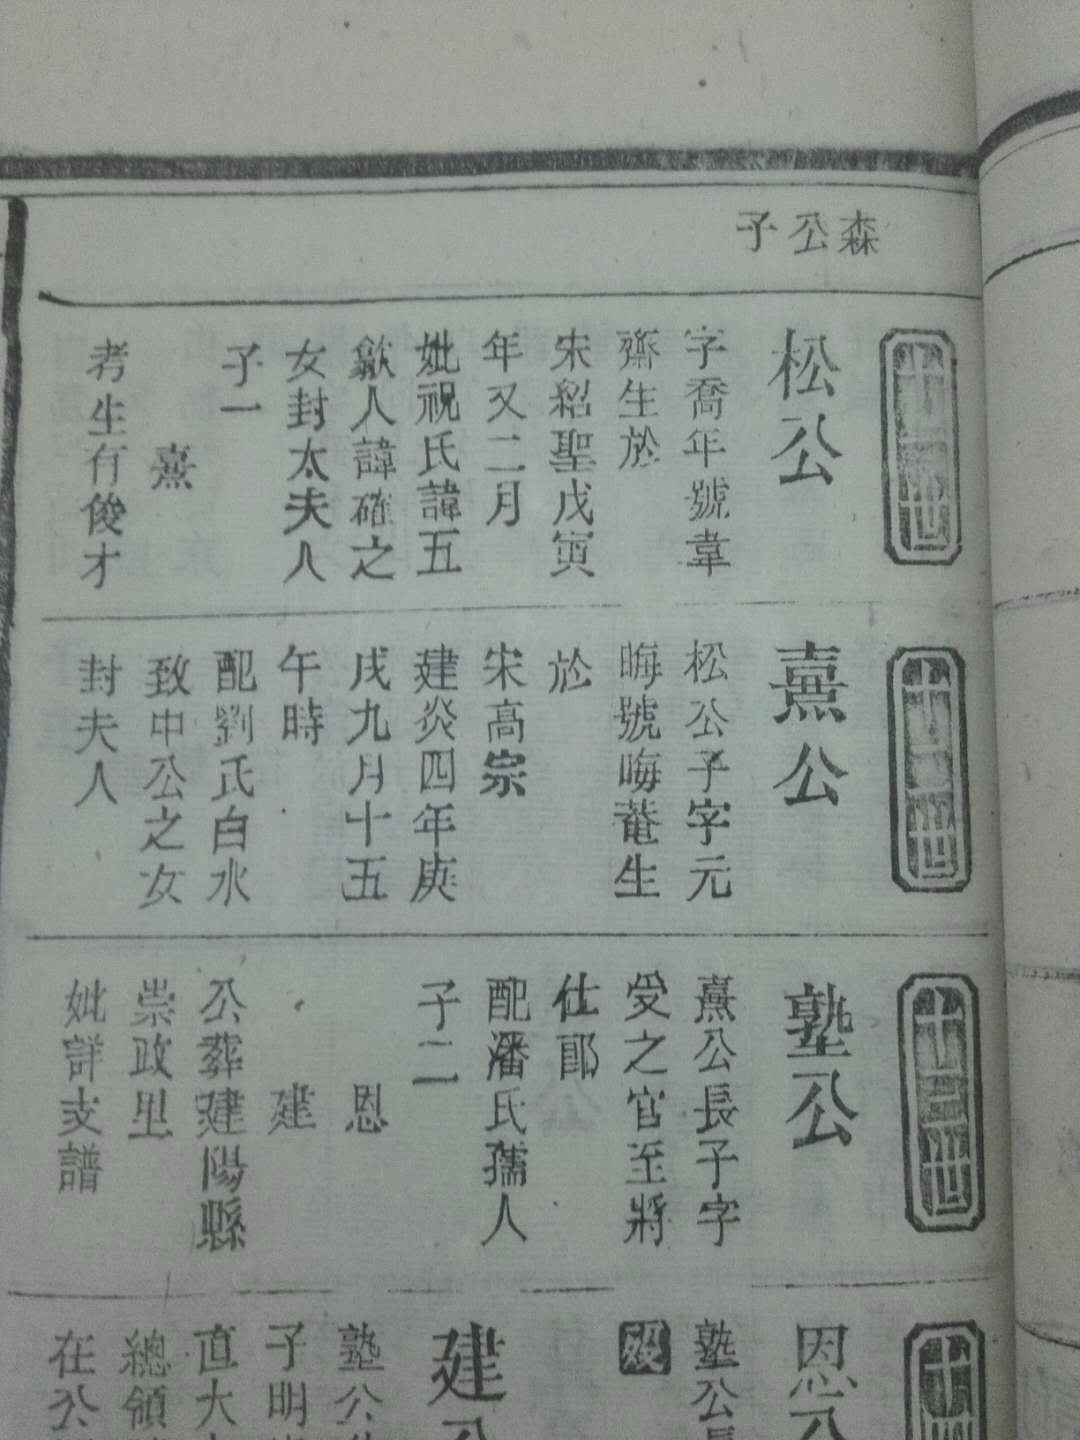 森公子
松公
字喬年號韋
齋生於
宋紹聖戊寅
年又二月
妣祝氏諱五
歙人諱確之
女封太夫人
子一
熹
考生有俊才
熹公
松公子字元
晦號晦菴生
於
宋高宗
建炎四年庚
戌九月十五
午時
配劉氏白水
致中公之女
封夫人
塾公
熹公長子字
受之官至將
仕郎
配潘氏孺人
子二
恩
建
公葬建陽縣
崇政里
妣詳支譜
恩公
塾公長
歿
建公
塾公
子明
直大
總領
在公